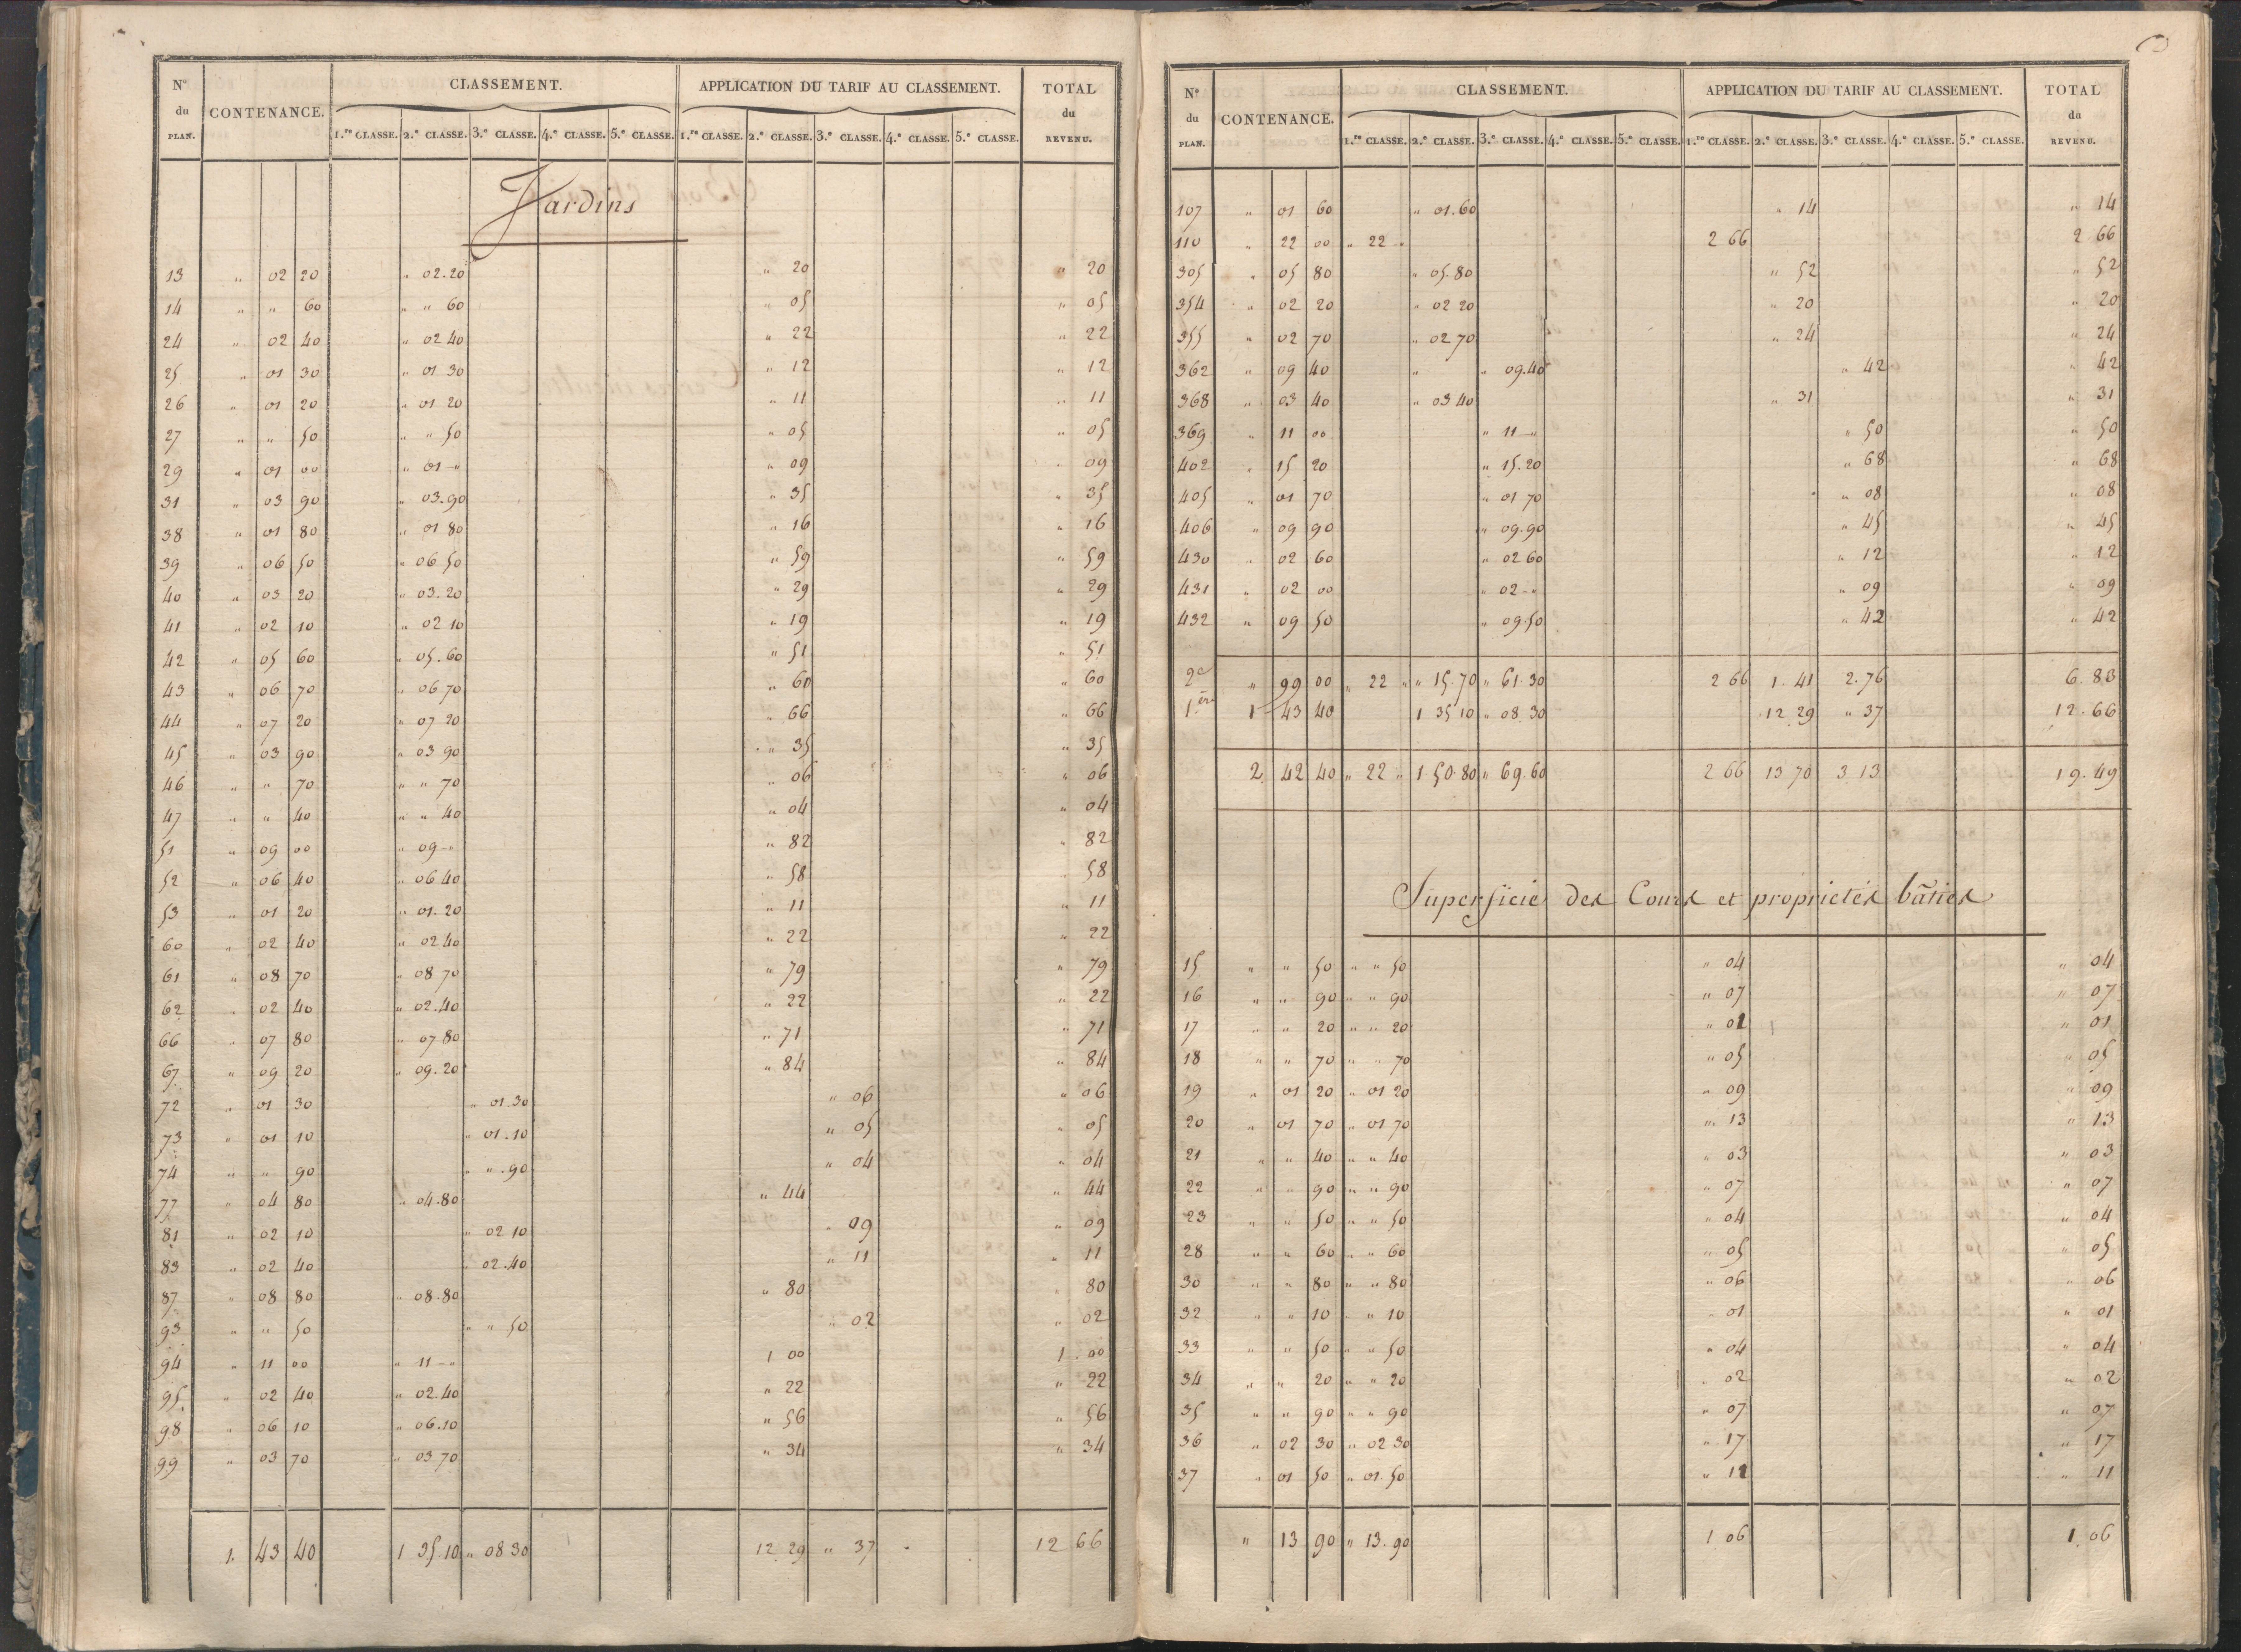 N° du PLAN. CONTENANCE. CLASSEMENT. APPLICATION DU TARIF AU CLASSEMENT. TOTAL du REVENU.
1.re CLASSE. 2.e CLASSE. 3.e CLASSE. 4.e CLASSE. 5.e CLASSE. 1.re CLASSE. 2.e CLASSE. 3.e CLASSE. 4.e CLASSE. 5.e CLASSE.
Jardins
13 " 02 20 " 02.20 " 20 " 20
14 " " 60 " " 60 " 05 " 05
24 " 02 40 " 02 40 " 22 " 22
25 " 01 30 " 01 30 " 12 " 12
26 " 01 20 " 01 20 " 11 " 11
27 " " 50 " " 50 " 05 " 05
29 " 01 00 " 01 - " " 09 " 09
31 " 03 90 " 03.90 " 35 " 35
38 " 01 80 " 01 80 " 16 " 16
39 " 06 50 " 06 50 " 59 " 59
40 " 03 20 " 03.20 " 29 " 29
41 " 02 10 " 02 10 " 19 " 19
42 " 05 60 " 05.60 " 51 " 51
43 " 06 70 " 06 70 " 60 " 60
44 " 07 20 " 07 20 " 66 " 66
45 " 03 90 " 03 90 " 35 " 35
46 " " 70 " " 70 " 06 " 06
47 " " 40 " " 40 " 04 " 04
51 " 09 00 " 09 - " " 82 " 82
52 " 06 40 " 06 40 " 58 " 58
53 " 01 20 " 01.20 " 11 " 11
60 " 02 40 " 02 40 " 22 " 22
61 " 08 70 " 08 70 " 79 " 79
62 " 02 40 " 02.40 " 22 " 22
66 " 07 80 " 07 80 " 71 " 71
67 " 09 20 " 09.20 " 84 " 84
72 " 01 30 " 01.30 " 06 " 06
73 " 01 10 " 01.10 " 05 " 05
74 " " 90 " " .90 " 04 " 04
77 " 04 80 " 04.80 " 44 " 44
81 " 02 10 " 02 10 " 09 " 09
83 " 02 40 " 02.40 " 11 " 11
87 " 08 80 " 08.80 " 80 " 80
93 " " 50 " " 50 " 02 " 02
94 " 11 00 " 11 - " 1 00 1.00
95 " 02 40 " 02.40 " 22 " 22
98 " 06 10 " 06.10 " 56 " 56
99 " 03 70 " 03 70 " 34 " 34
1. 43 40 1 35 10 " 08 30 12 29 " 37 12 66
N° du PLAN. CONTENANCE. CLASSEMENT. APPLICATION DU TARIF AU CLASSEMENT. TOTAL du REVENU.
1.re CLASSE. 2.e CLASSE. 3.e CLASSE. 4.e CLASSE. 5.e CLASSE. 1.re CLASSE. 2.e CLASSE. 3.e CLASSE. 4.e CLASSE. 5.e CLASSE.
107 " 01 60 " 01.60 " 14 " 14
110 " 22 00 " 22 - " 2 66 2 66
305 " 05 80 " 05.80 " 52 " 52
354 " 02 20 " 02 20 " 20 " 20
355 " 02 70 " 02 70 " 24 " 24
362 " 09 40 " " 09.40 " 42 " 42
368 " 03 40 " 03 40 " 31 " 31
369 " 11 00 " 11 - " " 50 " 50
402 " 15 20 " 15.20 " 68 " 68
405 " 01 70 " 01 70 " 08 " 08
406 " 09 90 " 09.90 " 45 " 45
430 " 02 60 " 02 60 " 12 " 12
431 " 02 00 " 02 - " " 09 " 09
432 " 09 50 " 09.50 " 42 " 42
2e " 99 00 " 22 " " 15.70 " 61.30 2 66 1.41 2.76 6 83
1ère 1 43 40 1 35 10 " 08.30 12 29 " 37 12.66
2 42 40 " 22 " 1 50.80 " 69.60 2 66 13 70 3 13 19.49
Superficie des Cours et propriétés bâties
15 " " 50 " " 50 " 04 " 04
16 " " 90 " " 90 " 07 " 07
17 " " 20 " " 20 " 01 " 01
18 " " 70 " " 70 " 05 " 05
19 " 01 20 " 01 20 " 09 " 09
20 " 01 70 " 01 70 " 13 " 13
21 " " 40 " " 40 " 03 " 03
22 " " 90 " " 90 " 07 " 07
23 " " 50 " " 50 " 04 " 04
28 " " 60 " " 60 " 05 " 05
30 " " 80 " " 80 " 06 " 06
32 " " 10 " " 10 " 01 " 01
33 " " 50 " " 50 " 04 " 04
34 " " 20 " " 20 " 02 " 02
35 " " 90 " " 90 " 07 " 07
36 " 02 30 " 02 30 " 17 " 17
37 " 01 50 " 01.50 " 11 " 11
" 13 90 " 13.90 1 06 1.06